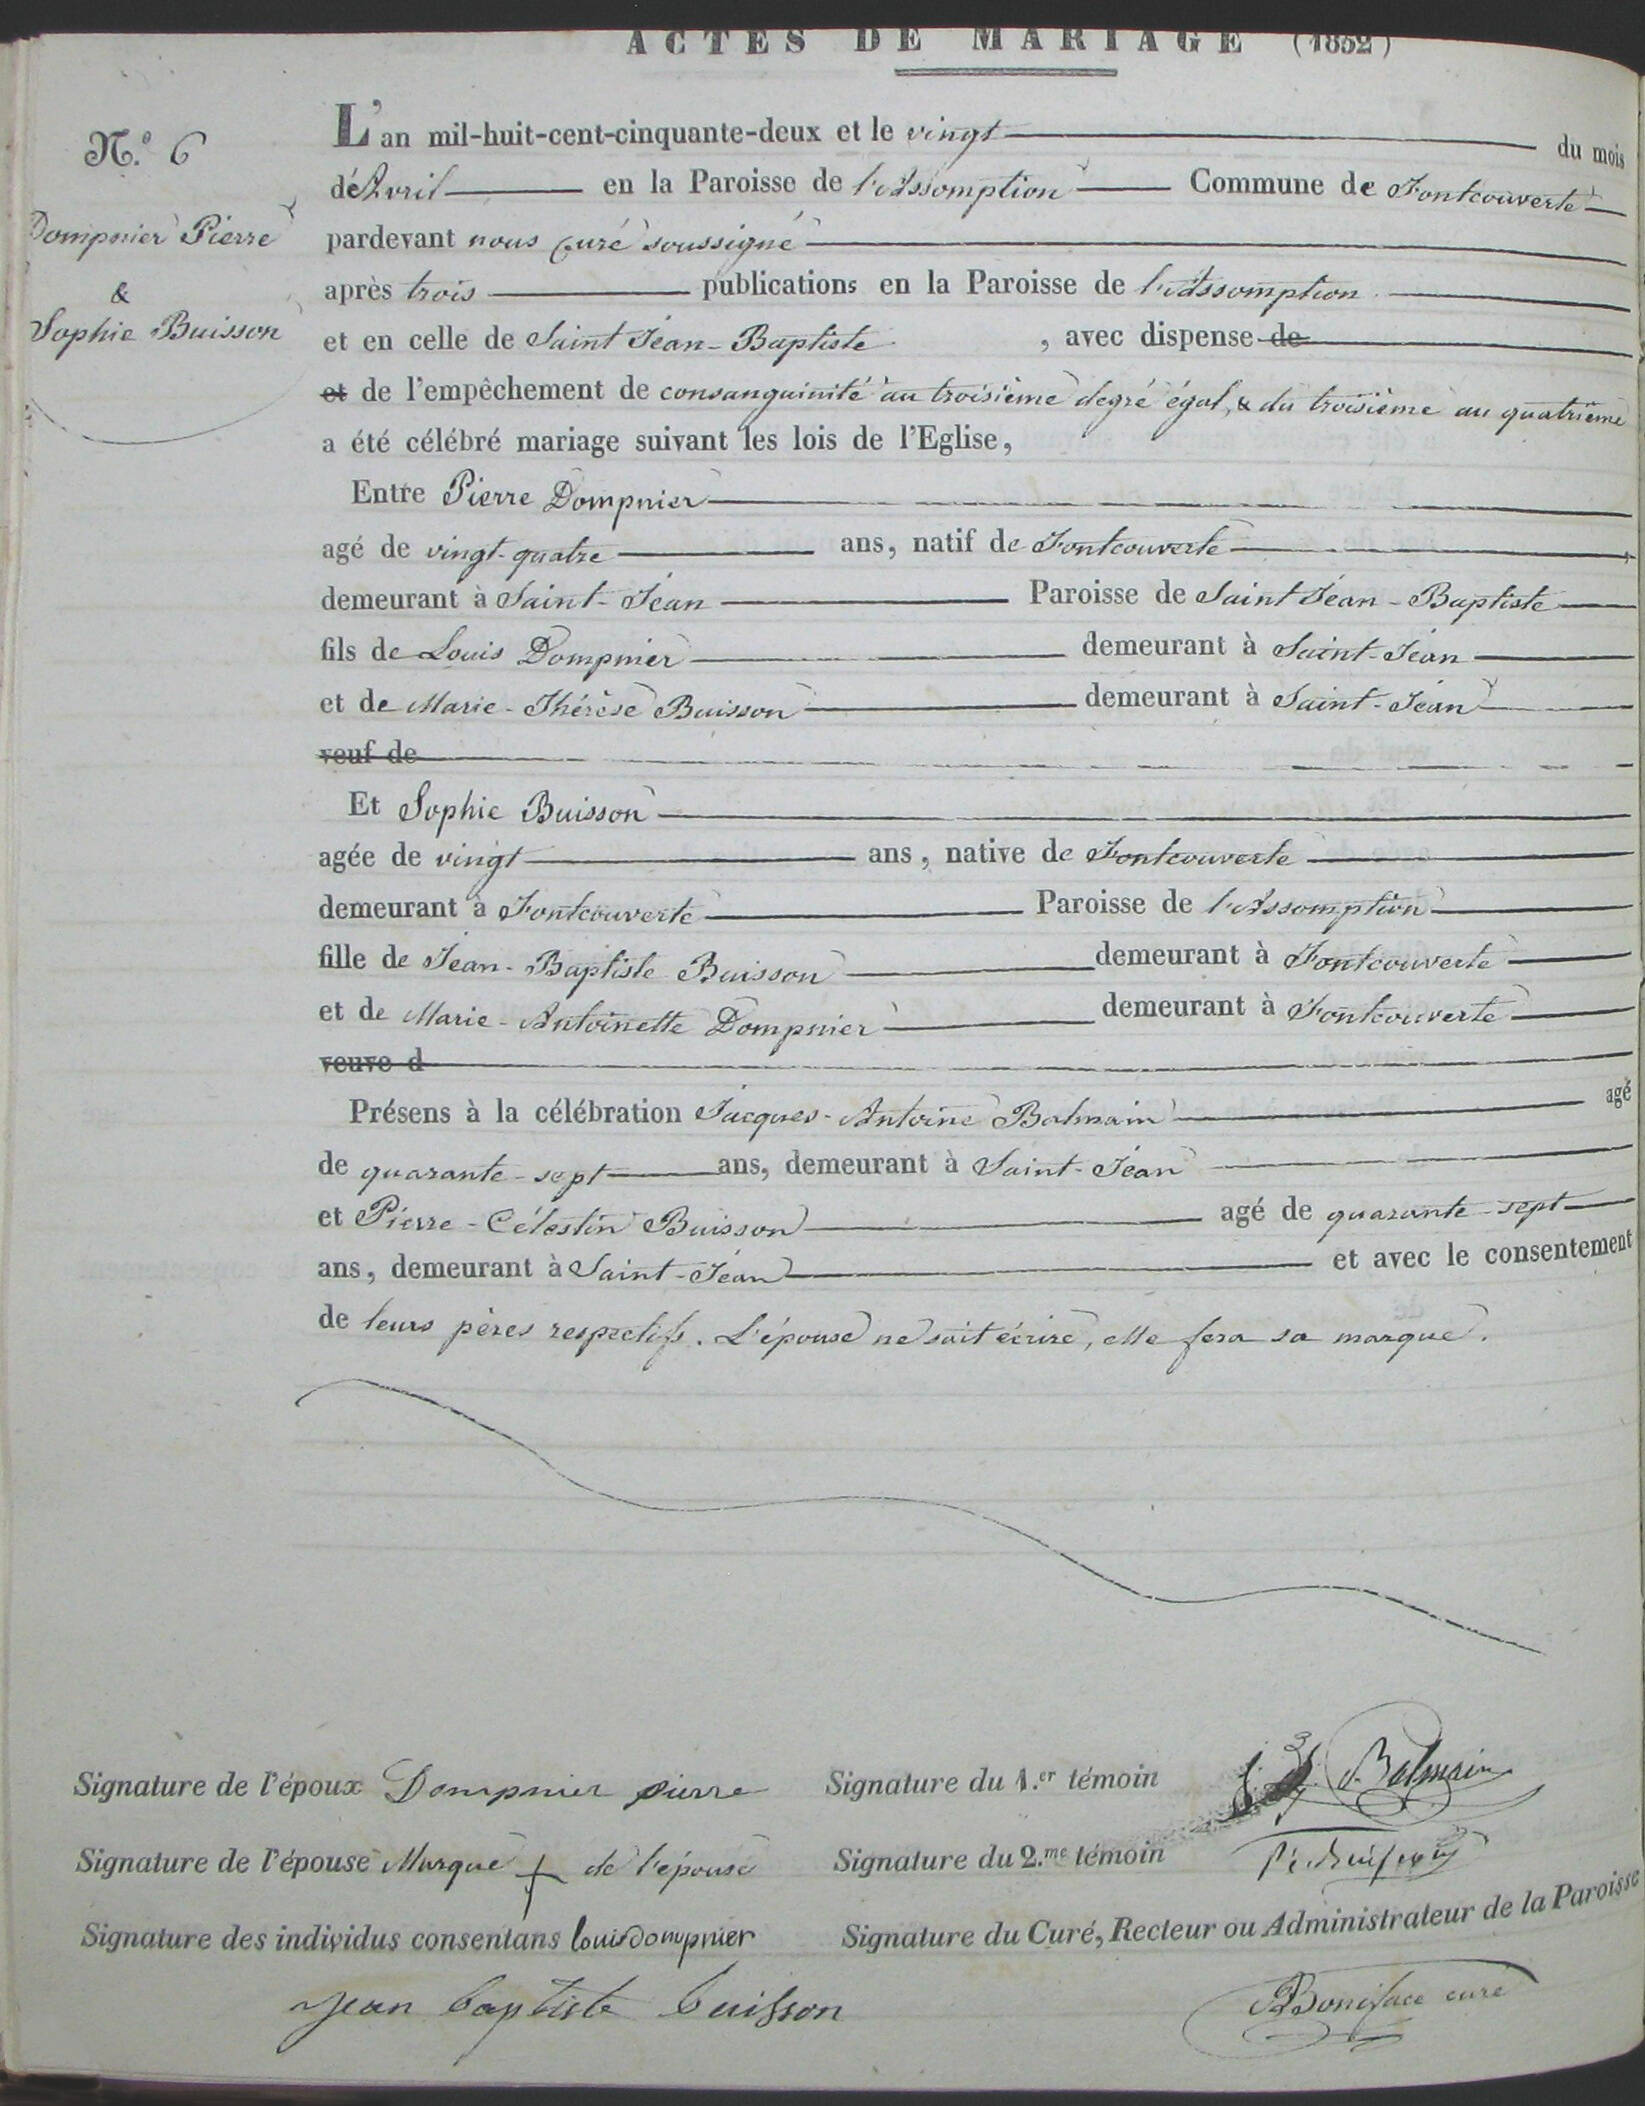 ACTES DE MARIAGE (1852)
N.º 6
Dompnier Pierre
&
Sophie Buisson
L'an mil-huit-cent-cinquante-deux et le vingt du mois
de Avril en la Paroisse de l'Assomption Commune de Fontcouverte
pardevant nous curé soussigné
après trois publications en la Paroisse de l'Assomption
et en celle de Saint Jean-Baptiste , avec dispense de
et de l'empêchement de consanguinité au troisième degré égal, & du troisième au quatrième
a été célébré mariage suivant les lois de l'Eglise,
Entre Pierre Dompnier
agé de vingt-quatre ans, natif de Fontcouverte
demeurant à Saint-Jean Paroisse de Saint Jean-Baptiste
fils de Louis Dompnier demeurant à Saint-Jean
et de Marie-Thérèse Buisson demeurant à Saint-Jean
veuf de
Et Sophie Buisson
agée de vingt ans, native de Fontcouverte
demeurant à Fontcouverte Paroisse de l'Assomption
fille de Jean-Baptiste Buisson demeurant à Fontcouverte
et de Marie-Antoinette Dompnier demeurant à Fontcouverte
veuve d
Présens à la célébration Jacques-Antoine Balmain agé
de quarante-sept ans, demeurant à Saint-Jean
et Pierre-Célestin Buisson agé de quarante-sept
ans, demeurant à Saint-Jean et avec le consentement
de leurs pères respectifs. L'épouse ne sait écrire, elle fera sa marque.
Signature de l'époux Dompnier pierre Signature du 1.er témoin Balmain
Signature de l'épouse Marque + de l'épouse Signature du 2.me témoin
Signature des individus consentans louis dompnier Signature du Curé, Recteur ou Administrateur de la Paroisse
jean baptiste buisson Boniface curé